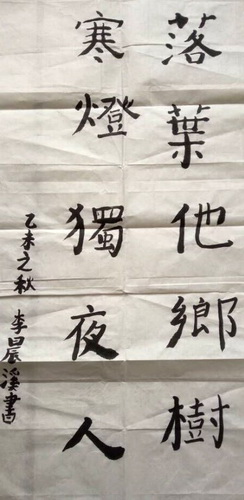 落葉他鄉樹
寒燈獨夜人
乙未之秋 李晨溪書